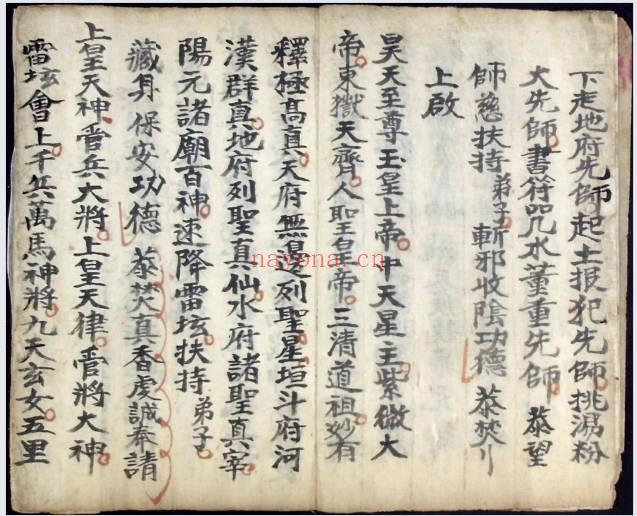 下走地府先師起土报犯先師挑湯粉
大先師書符咒水董重先師 恭望
師慈扶持弟子斬邪收陰功德 恭焚刂
上啟
昊天至尊玉皇上帝中天星主紫微大
帝東嶽天齊人聖皇帝三清道祖妙有
釋極高真天府無邊列聖星垣斗府河
漢群真地府列聖真仙水府諸聖真宰
陽元諸廟百神速降雷坛扶持弟子
藏身保安功德 恭焚真香虔誠奉請
上皇天神管兵大將上皇天律管將大神
雷坛會上千兵萬馬神將九天玄女五里
nayona.cn